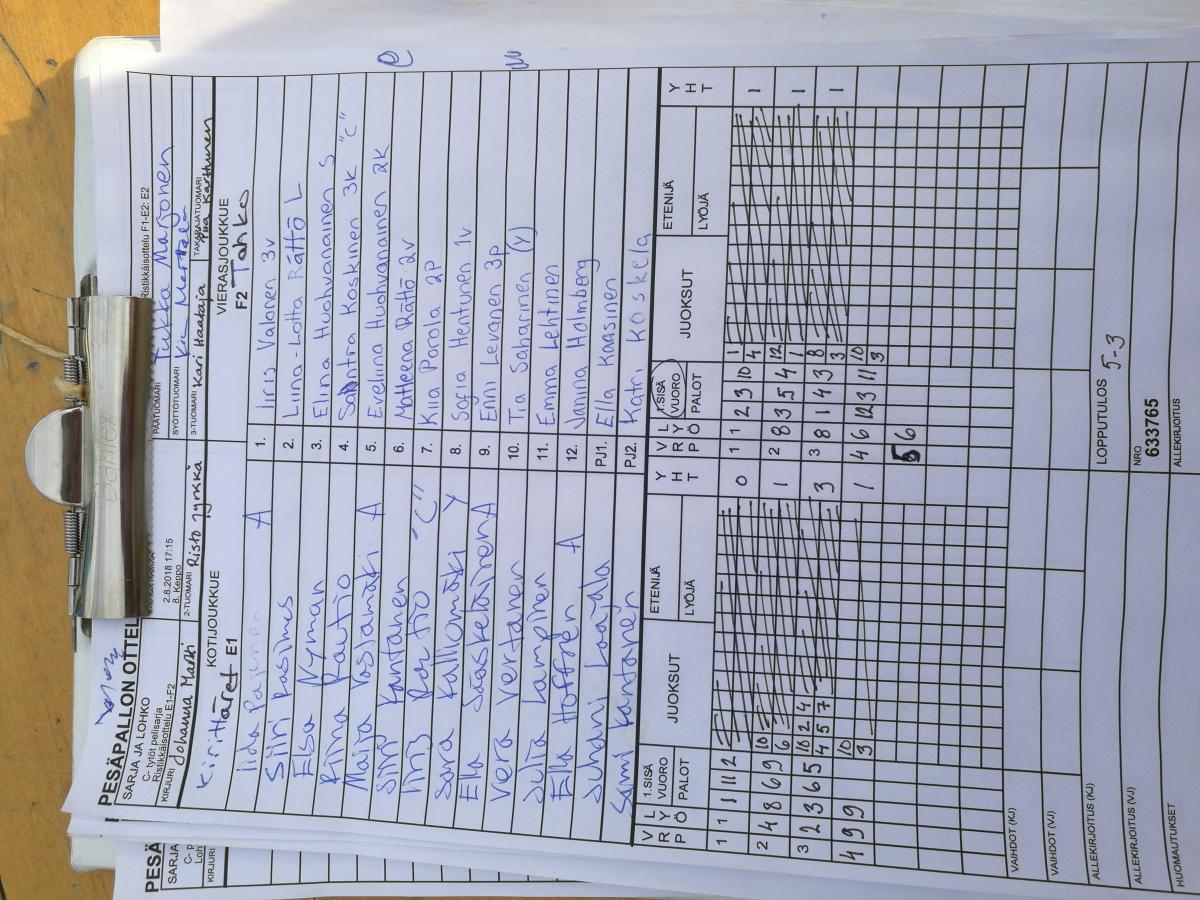 PESÄPALLON OTTEL
SARJA JA LOHKO
C- tytöt pelisarja
Ristikkäisottelu E1-F2
2.8.2018 17:15
8. Keppo
PÄÄTUOMARI Tukka Marjonen
Ristikkäisottelu F1-E2: E2
SYÖTTÖTUOMARI
KIRJURI Johanna Matti
2-TUOMARI Risto Jyrkkä
3-TUOMARI Kari Haataja
TAKARAJATUOMARI Piia Karttunen
KOTIJOUKKUE
Kirittäret E1
VIERASJOUKKUE
F2 Tahko
Iida Pajunen A
1. Iiris Valonen 3v
Siiri Rasimus
2. Liina-Lotta Rättö L
Elsa Nyman
3. Elina Huohvanainen S
Riina Rautio
4. Santra Koskinen 3K "C"
Maija Vasjamäki A
5. Eveliina Huohvanainen 2K
Siiri Kantanen
6. Matleena Rättö 2v
Iiris Rartio "C"
7. Kiia Porola 2P
Sara Kalliomäki Y
8. Sofia Hentunen 1v
Ella Sääskeläinen A
9. Emi Levanen 3p
Vera Vertanen
10. Tia Saharinen (Y)
Julia Lampinen
11. Emma Lehtinen
Ella Hoffren A
12. Janna Holmberg
Juhani Laajala
PJ1. Ella Kaasinen
Sami Kantanen
PJ2. Katri Koskela
VRP LYÖ 1.SISÄ VUORO PALOT JUOKSUT ETENIJÄ LYÖJÄ YHT
VRP LYÖ 1.SISÄ VUORO PALOT JUOKSUT ETENIJÄ LYÖJÄ YHT
1 1 1 11 2 0
1 1 2 3 10 1 4 1
2 4 8 6 9 10 6 1
2 8 3 5 4 12 1 1
3 2 3 6 5 10 2 4 4 5 7 3
3 8 1 4 3 8 3 1
4 9 9 10 3 1
4 6 12 3 11 10 3
5 6
VAIHDOT (KJ)
VAIHDOT (VJ)
ALLEKIRJOITUS (KJ)
LOPPUTULOS 5-3
ALLEKIRJOITUS (VJ)
NRO
633765
HUOMAUTUKSET
ALLEKIRJOITUS
PESÄ
SARJA
C- p
Loh
KIRJURI